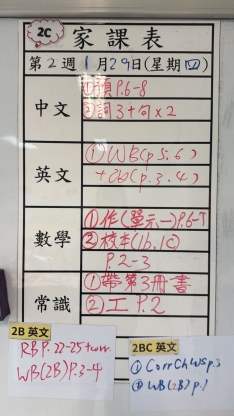 2C 家課表
第2週 1月29日(星期四)
中文
①順P.6-8
②詞3+句x2
英文
①WB(p.5,6)
(p.3,4)
數學
①作(單元一)P.6-7
②校本(1b,1c)
P.2-3
常識
①帶第3冊書
②工P.2
2B 英文
RB P.22-25+corr.
WB(2B)P.3-4
2BC 英文
① Corr Ch WS p.3
② WB(2B)p.1